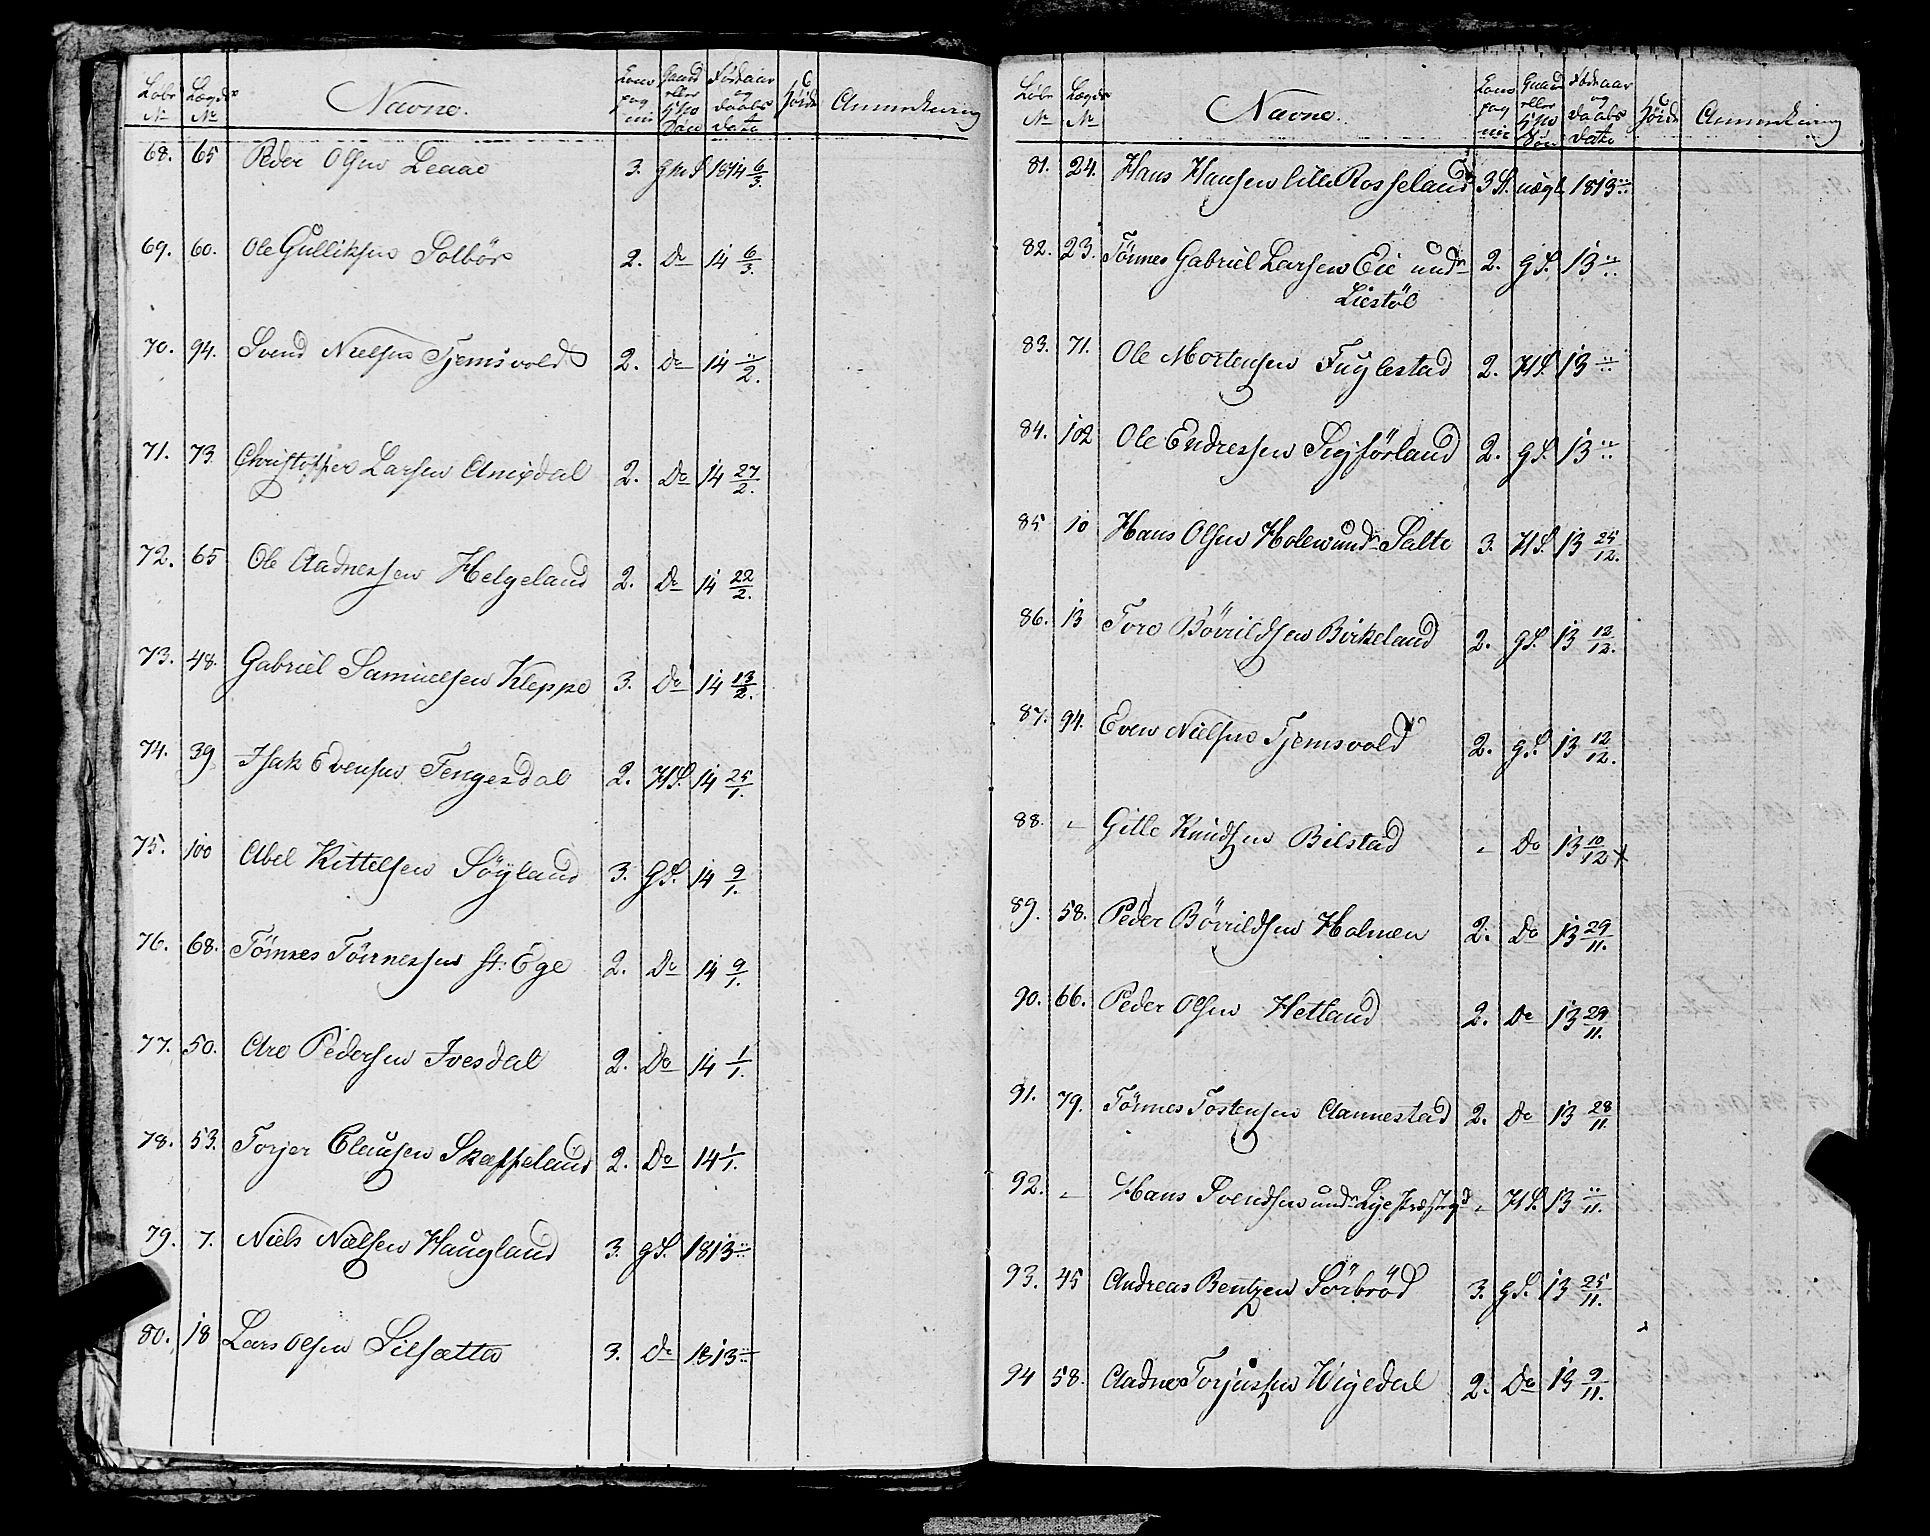 Løbe Lægds Navne. Com Gaard Fødeaar Høide Anmerkning
No No pag eller og
nie Hs daabs
Søn dato
68. 65 Peder Olsen Leaae 3. g M S 1814 6/3.
69. 60. Ole Gulliksen Solbør 2. Do 14 6/3.
70. 94. Svend Nielsen Tjemsvold 2. Do 14 "/2.
71. 73. Christopher Larsen Amsdal 2. Do 14 27/2.
72. 65 Ole Aadnessen Helgeland 2. Do 14 22/2.
73. 48. Gabriel Samuelsen Kleppe 3. Do 14 13/2.
74. 39 Isak Evensen Tengesdal 2. HS. 14 25/1.
75. 100 Abel Kittelsen Söyland 3. GS. 14 9/1.
76. 68. Tönnes Tönnessen st: Ege 2. Do 14 9/1.
77. 50. Are Pedersen Ivesdal 2. Do 14 1/1.
78. 53. Torjer Clausen Skæppeland 2. Do 14 1/1.
79. 7. Niels Nielsen Haugland 3. gS. 1813 "/"
80. 18 Lars Olsen Silsætter 3. Do 1813 "/"
Løbe Lægds Navne. Com Gaard Fødeaar Høide Anmerkning
No No pag eller og
nie Hs daabs
Søn dato
81. 24. Hans Hansen litle Rosseland 3 St. uægt 1813 "/"
82. 23. Tönnes Gabriel Larsen Eie undr 2. gS. 13 "/"
Liestöl
83. 71. Ole Mortensen Fuglestad 2. HS. 13 "/"
84. 102 Ole Endressen Sigförland 2. gS. 13 "/"
85 10 Hans Olsen Holen undr Salte 3. HS. 13 25/12.
86. 13 Tore Bövrildsen Birkeland 2. gS. 13 12/12.
87. 94. Even Nielsen Tjemsvold 2. gS. 13 12/12.
88. " Gitle Knudsen Bilstad " Do 13 10/12 x
89. 58. Peder Bövrildsen Holmen 2. Do 13 29/11.
90. 66. Peder Olsen Hetland 2. Do 13 29/11.
91. 79. Tönnes Tostensen Aannestad 2. Do 13 28/11.
92. " Hans Svendsen undr Lye Præstegd " HS. 13 "/11.
93. 45 Andreas Bentzen Sörbröd 3. gS. 13 25/11.
94 58. Aadne Torjussen Wigedal 2. Do 13 9/11.